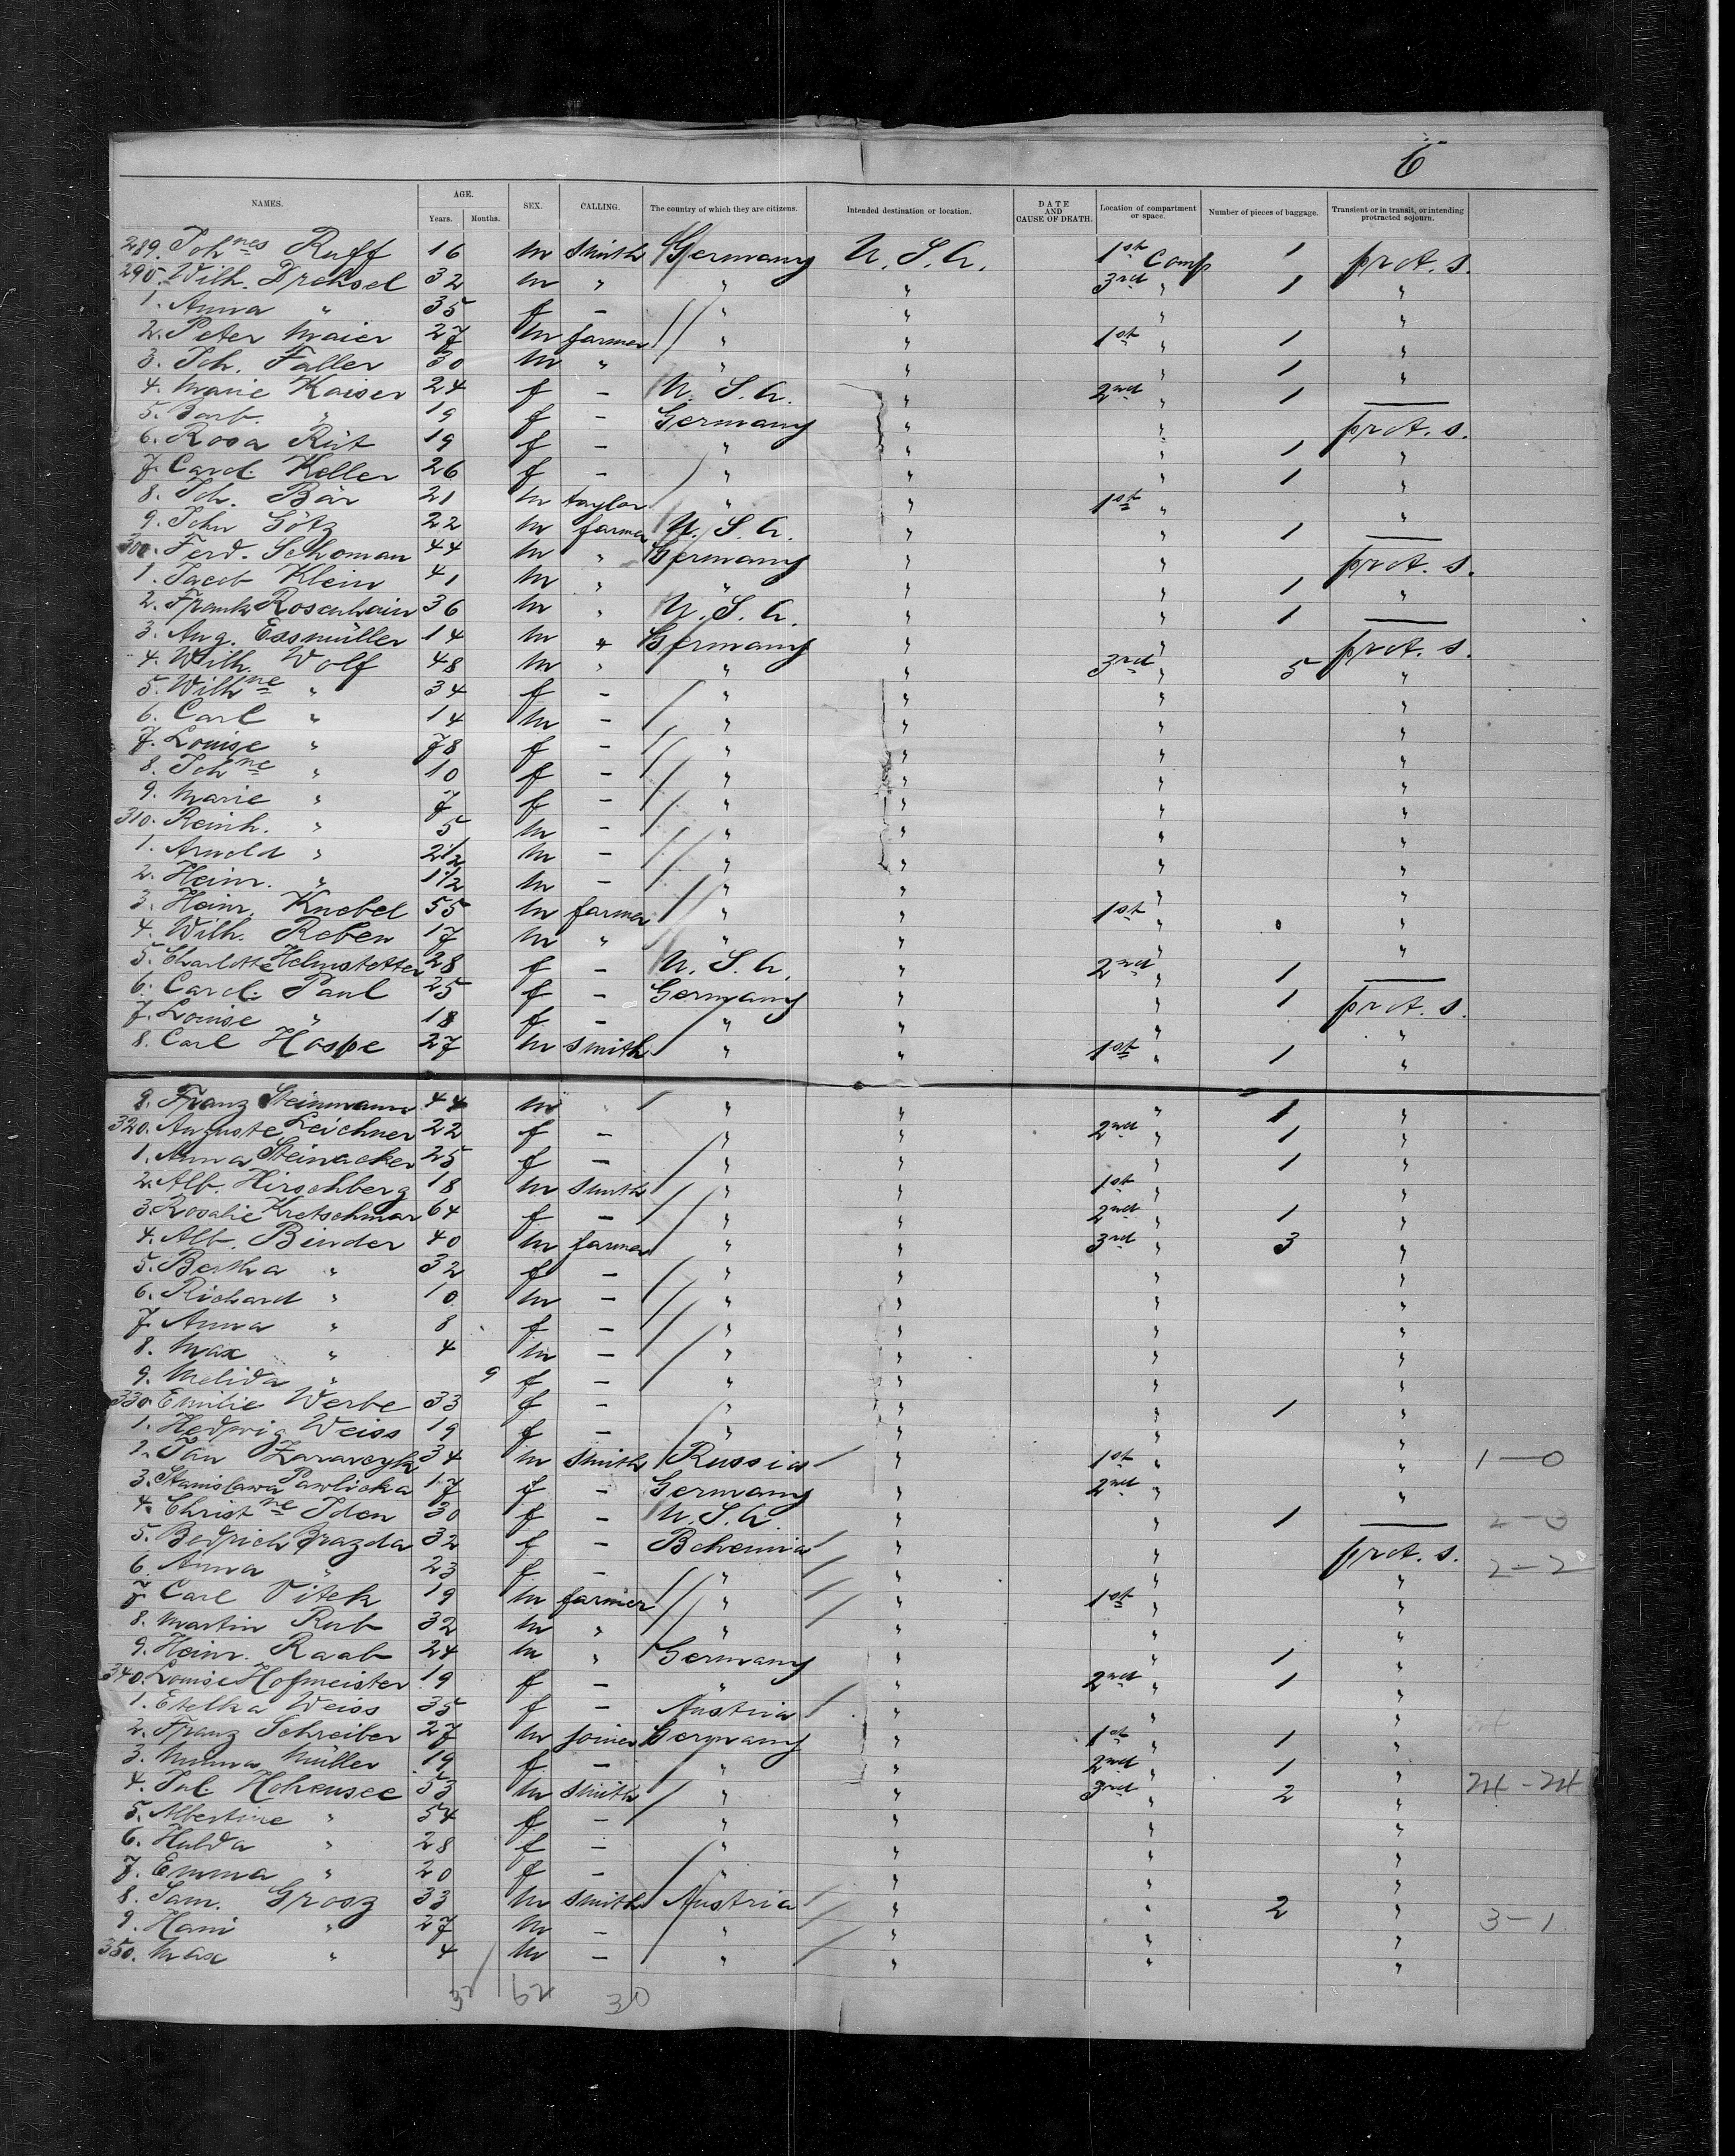 6
NAMES. AGE. SEX. CALLING. The country of which they are citizens. Intended destination or location. DATE AND CAUSE OF DEATH. Location of compartment or space. Number of pieces of baggage. Transient or in transit, or intending protracted sojourn.
Years. Months.
289. Johnes Ruff 16 m smith Germany U. S. A. 1st Comp 1 prot. s.
290. Wilh. Drehsel 32 m " " " 3rd " 1 "
1. Anna " 35 f — " " " "
2. Peter Maier 27 m farmer " " 1st " 1 "
3. Joh. Faller 30 m " " " " 1 "
4. Marie Kaiser 24 f — U. S. A. " 2nd " 1 —
5. Barb. " 19 f — Germany " " prot. s.
6. Rosa Rüt 19 f — " " " 1 "
7. Carol. Keller 26 f — " " " 1 "
8. Joh. Bär 21 m taylor " " 1st " "
9. John Götz 22 m farmer U. S. A. " " 1 —
300. Ferd. Schoman 44 m " Germany " " prot. s.
1. Jacob Klein 41 m " " " " 1 "
2. Frank Rosenhain 36 m " U. S. A. " " 1 —
3. Aug. Essmüller 14 m " Germany " " prot. s.
4. Wilh. Wolf 48 m " " " 3rd " 5 "
5. Wilhne " 34 f — " " " "
6. Carl " 14 m — " " " "
7. Louise " 78 f — " " " "
8. Johne " 10 f — " " " "
9. Marie " 7 f — " " " "
310. Reinh. " 5 m — " " " "
1. Arnold " 2 1/2 m — " " " "
2. Heinr. " 1 1/2 m — " " " "
3. Heinr. Knebel 55 m farmer " " 1st " "
4. Wilh. Reben 17 m " " " " "
5. Charlotte Helmstetter 28 f — U. S. A. " 2nd " 1 —
6. Carol. Paul 25 f — Germany " " 1 prot. s.
7. Louise " 18 f — " " " "
8. Carl Hospe 27 m smith " " 1st " 1 "
9. Franz Steinmann 44 m " " " " 1 "
320. Auguste Leichner 22 f — " " 2nd " 1 "
1. Anna Steinacker 25 f — " " " 1 "
2. Alb. Hirschberg 18 m smith " " 1st " "
3. Rosalie Kretschmar 64 f — " " 2nd " 1 "
4. Alb. Binder 40 m farmer " " 3rd " 3 "
5. Bertha " 32 f — " " " "
6. Richard " 10 m — " " " "
7. Anna " 8 f — " " " "
8. Max " 4 m — " " " "
9. Melida " 9 f — " " " "
330. Emilie Werbe 33 f — " " " 1 "
1. Hedwig Weiss 19 f — " " " "
2. Jan 34 m smith Russia " 1st " " 1—0
3. Stanislawa Pawlicka 17 f — Germany " 2nd " "
4. Christne Iden 30 f — U. S. A. " " 1 — 2—3
5. Bedrich Brazda 32 f — Bohemia " " prot. s.
6. Anna " 23 f — " " " " 2—2
7. Carl Vitek 19 m farmer " " 1st " "
8. Martin Rub 32 m " " " " "
9. Heinr. Raab 24 m " Germany " " 1 "
340. Louise Hofmeister 19 f — " " 2nd " 1 "
1. Etelka Weiss 35 f — Austria " " "
2. Franz Schreiber 27 m joiner Germany " 1st " 1 "
3. Minna Müller 19 f — " " 2nd " 1 "
4. Jul. Hohensee 53 m smith " " 3rd " 2 " 24-24
5. Albertine " 54 f — " " " "
6. Hulda " 28 f — " " " "
7. Emma " 20 f — " " " "
8. Sam. Grosz 33 m smith Austria " " 2 " 3—1
9. Hani " 27 m — " " " "
350. Max " 4 m — " " " "
62 30